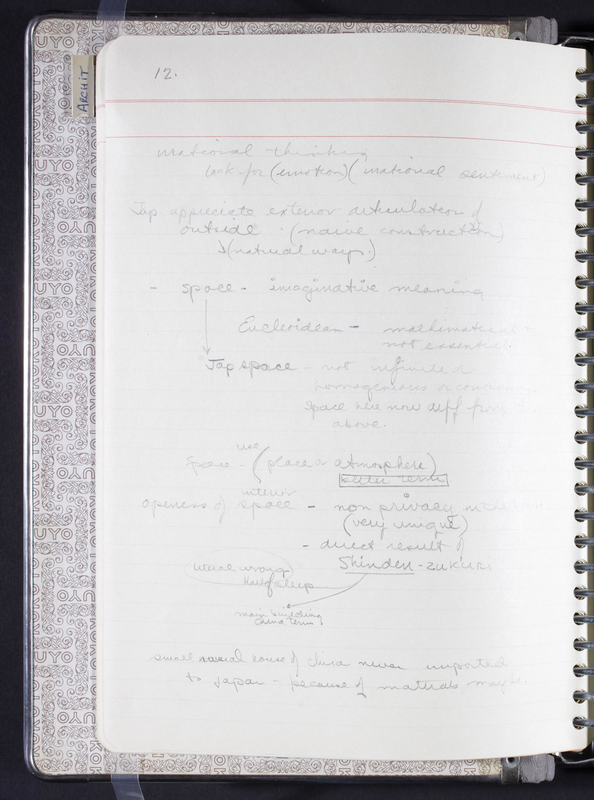 12.
ARCHIT
national thinking
look for (emotion) (national sentiment)
Jap appreciate exterior articulation of
outside. (naive construction)
(natural way.)
- space - imaginative meaning
Eucleoidean - mathematical -
not essential.
Jap space - not infinite
homogenious or
space here now diff from
above.
use
Space - (place or atmosphere)
better term
interior
openess of space - non privacy
(very unique)
- direct result of
Shinden - zukuri
wrong
Half asleep
main building
China term
small house of China never imported
to Japan - because of materials maybe.